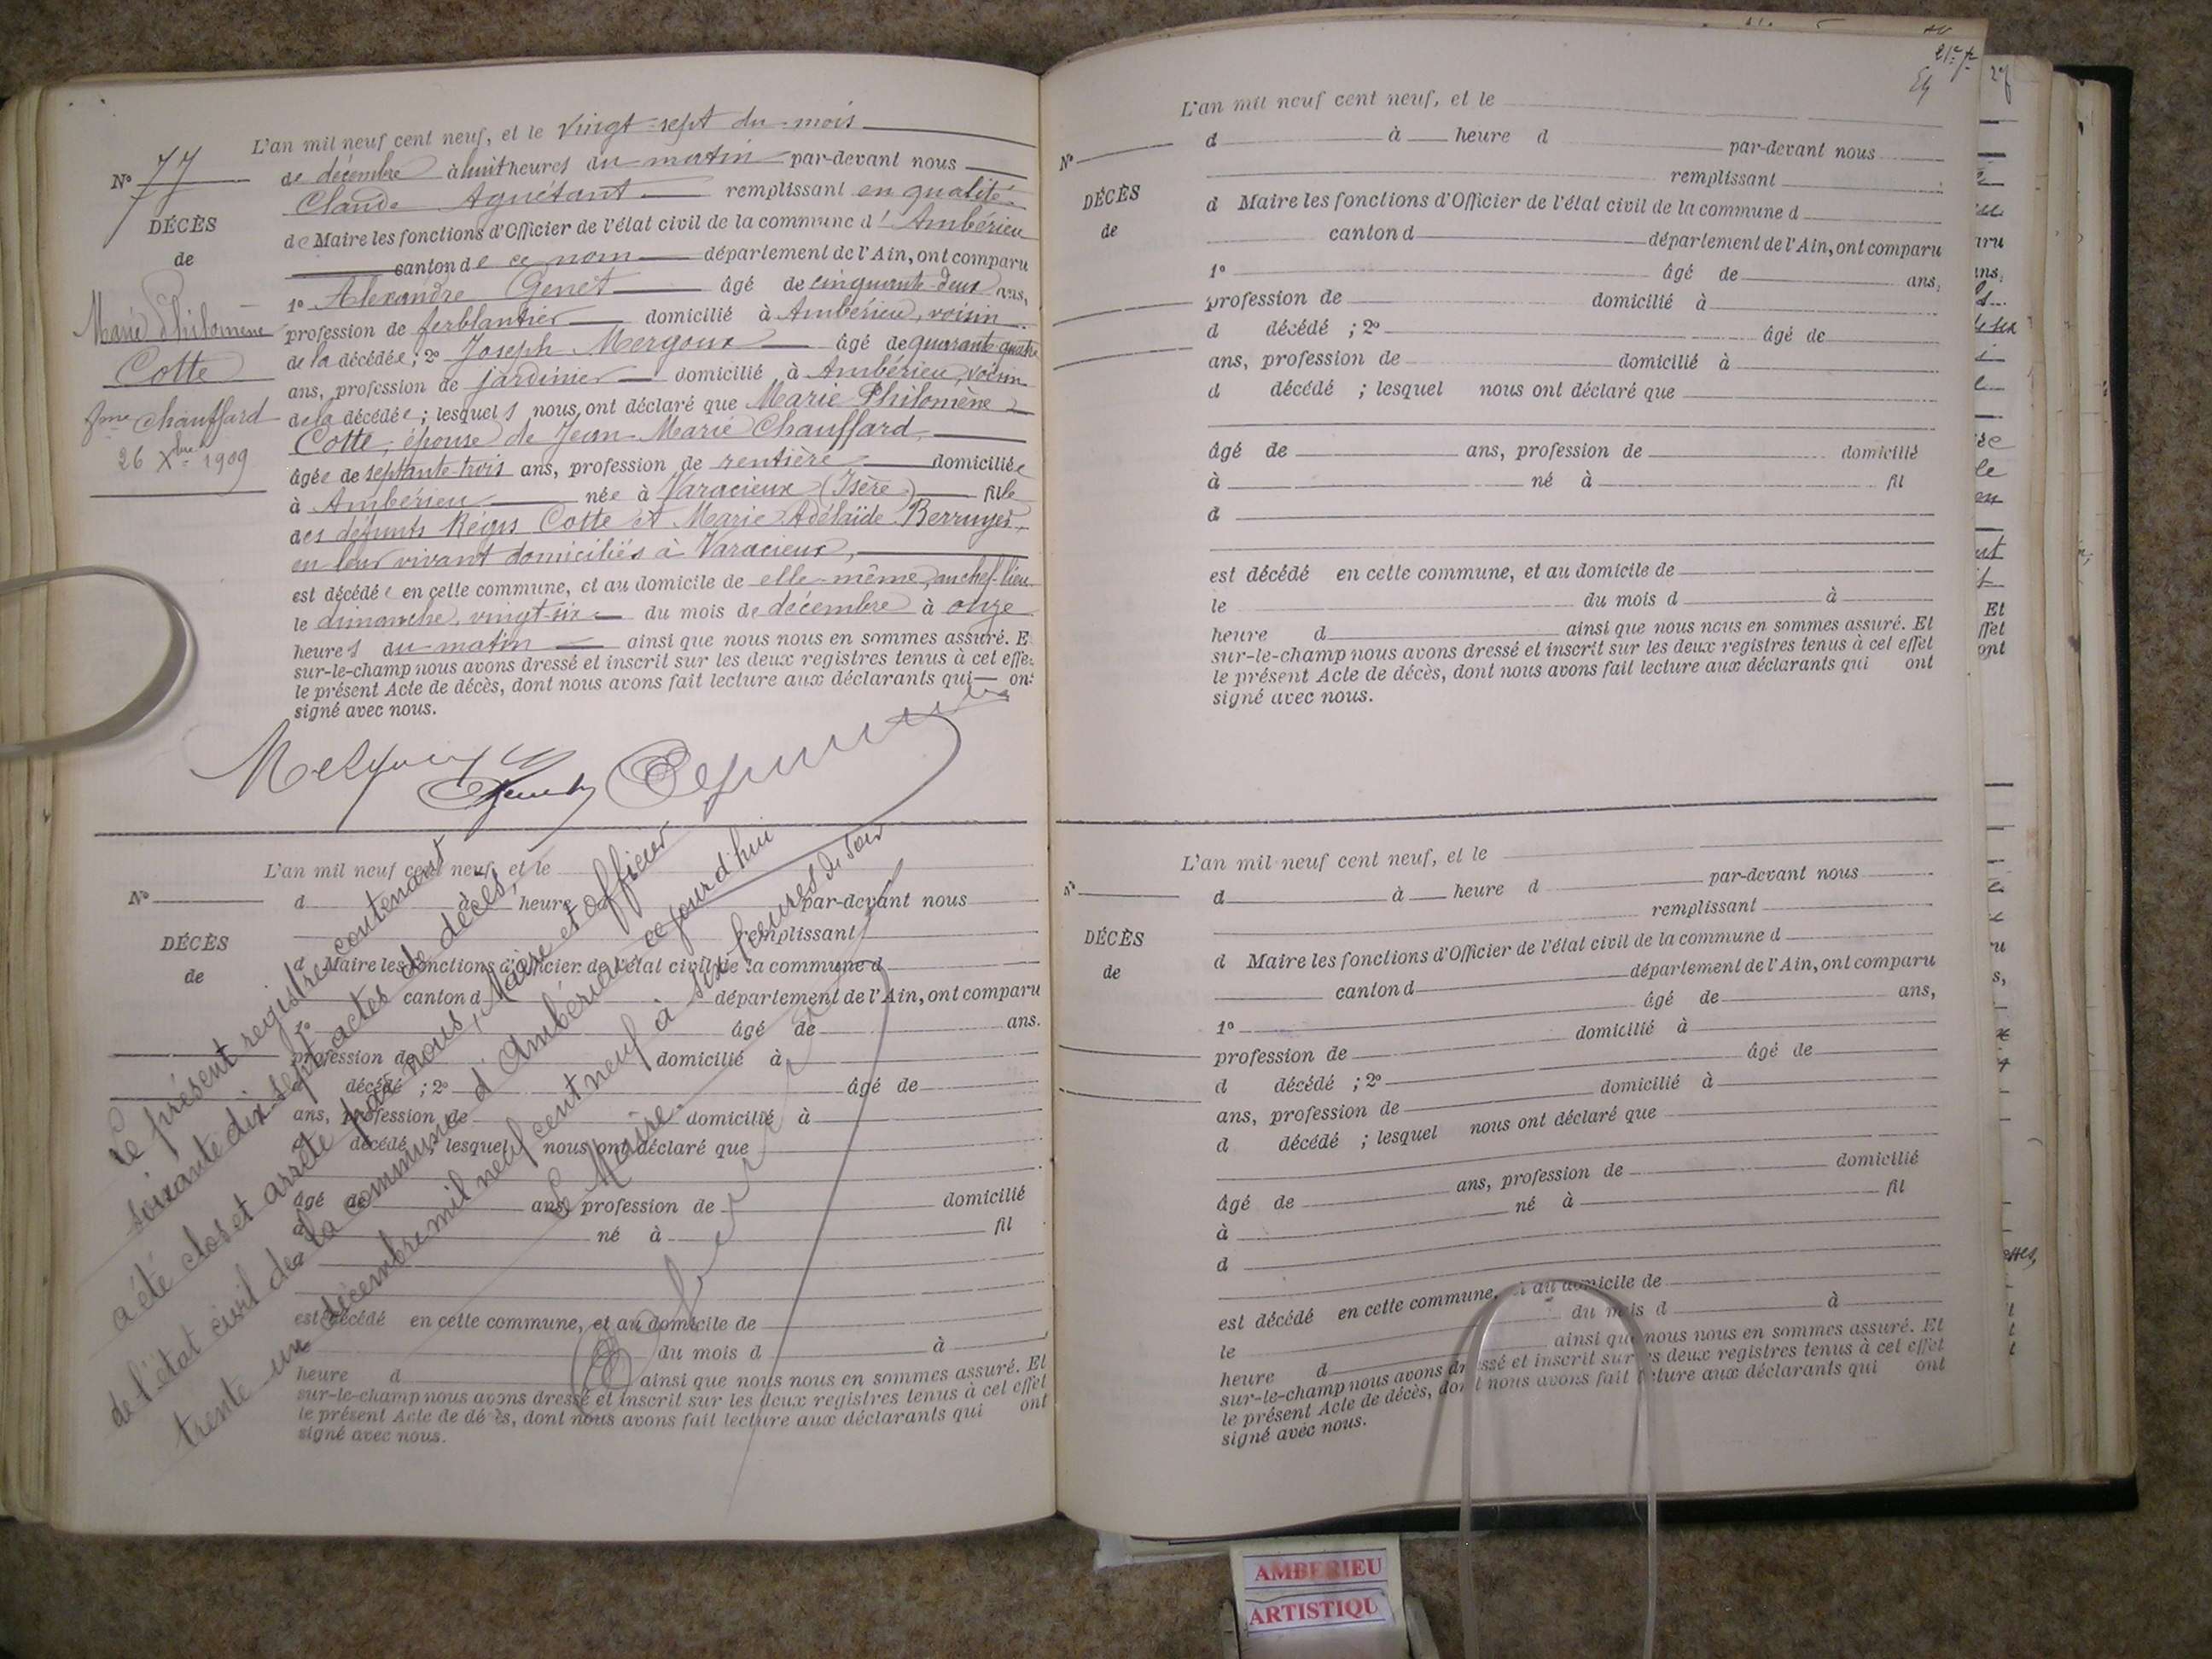 L'an mil neuf cent neuf, et le vingt-sept du mois
de décembre à huit heures du matin par-devant nous
Claude Aguétant remplissant en qualité
de Maire les fonctions d'Officier de l'état civil de la commune d'Ambérieu
canton de ce nom département de l'Ain, ont comparu
1º Alexandre Genet âgé de cinquante-deux ans,
profession de ferblantier domicilié à Ambérieu, voisin
de la décédée ; 2º Joseph Mergoux âgé de quarante-quatre
ans, profession de jardinier domicilié à Ambérieu, voisin
de la décédée ; lesquels nous ont déclaré que Marie Philomène
Cotte, épouse de Jean-Marie Chauffard,
âgée de septante-trois ans, profession de rentière domiciliée
à Ambérieu née à Varacieux (Isère) fille
des défunts Régis Cotte et Marie Adélaïde Berruyer,
en leur vivant domiciliés à Varacieux,
est décédée en cette commune, et au domicile de elle-même, au chef-lieu
le dimanche, vingt-six du mois de décembre à onze
heures du matin ainsi que nous nous en sommes assuré. E
sur-le-champ nous avons dressé et inscrit sur les deux registres tenus à cet effe
le présent Acte de décès, dont nous avons fait lecture aux déclarants qui ont
signé avec nous.
Nº 77
DÉCÈS
de
Marie Philomène
Cotte
fme Chauffard
26 Xbre 1909
L'an mil neuf cent neuf, et le
Nº
d à heure d par-devant nous
remplissant
DÉCÈS
de
d Maire les fonctions d'Officier de l'état civil de la commune d
canton d département de l'Ain, ont comparu
1º âgé de ans.
profession de domicilié à
d décédé ; 2º âgé de
ans, profession de domicilié à
d décédé ; lesquel nous ont déclaré que
âgé de ans, profession de domicilié
à né à fil
d
est décédé en cette commune, et au domicile de
le du mois d à
heure d ainsi que nous nous en sommes assuré. Et
sur-le-champ nous avons dressé et inscrit sur les deux registres tenus à cet effet
le présent Acte de décès, dont nous avons fait lecture aux déclarants qui ont
signé avec nous.
Le présent registre contenant
soixante dix sept actes de décès,
a été clos et arrêté par nous, Maire et officier
de l'état civil de la commune d'Ambérieu ce jourd'hui
trente un décembre mil neuf cent neuf à six heures du soir
Le Maire
L'an mil neuf cent neuf, et le
Nº
d à heure d par-devant nous
remplissant
DÉCÈS
de
d Maire les fonctions d'Officier de l'état civil de la commune d
canton d département de l'Ain, ont comparu
1º âgé de ans,
profession de domicilié à
d décédé ; 2º âgé de
ans, profession de domicilié à
d décédé ; lesquel nous ont déclaré que
âgé de ans, profession de domicilié
à né à fil
d
est décédé en cette commune, et au domicile de
le du mois d à
heure d ainsi que nous nous en sommes assuré. Et
sur-le-champ nous avons dressé et inscrit sur les deux registres tenus à cet effet
le présent Acte de décès, dont nous avons fait lecture aux déclarants qui ont
signé avec nous.
L'an mil neuf cent neuf, et le
d à heure d par-devant nous
remplissant
DÉCÈS
de
d Maire les fonctions d'Officier de l'état civil de la commune d
canton d département de l'Ain, ont comparu
1º âgé de ans,
profession de domicilié à
d décédé ; 2º âgé de
ans, profession de domicilié à
d décédé ; lesquel nous ont déclaré que
âgé de ans, profession de domicilié
à né à fil
d
est décédé en cette commune, et au domicile de
le du mois d à
heure d ainsi que nous nous en sommes assuré. Et
sur-le-champ nous avons dressé et inscrit sur les deux registres tenus à cet effet
le présent Acte de décès, dont nous avons fait lecture aux déclarants qui ont
signé avec nous.
AMBERIEU
ARTISTIQU